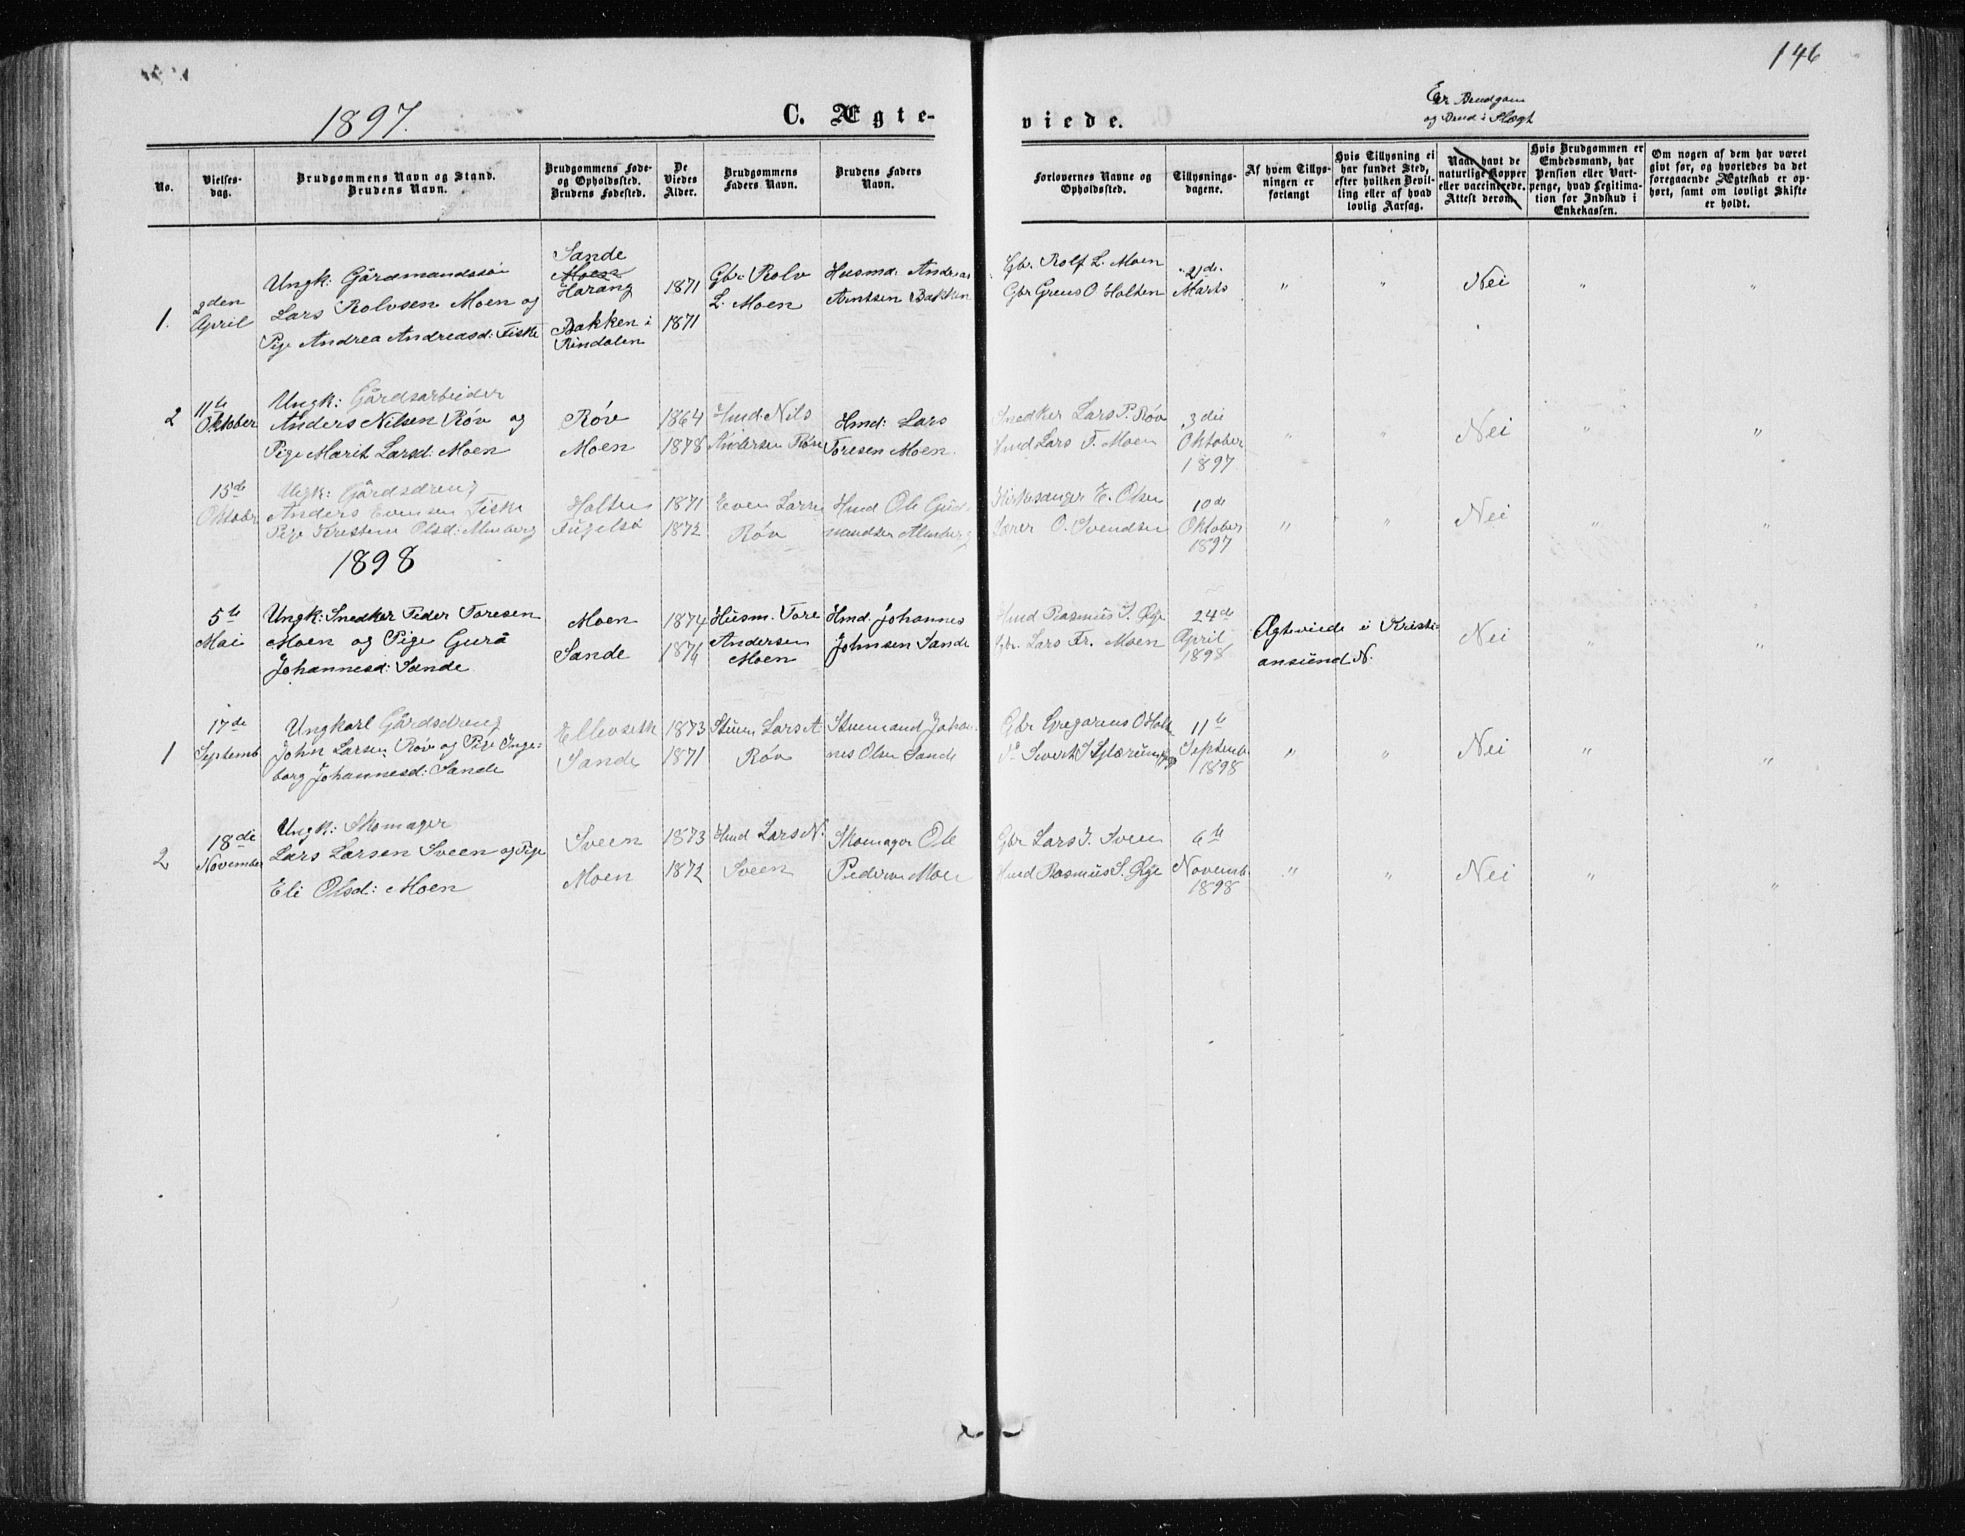 146
1897.
C. Ægte-
viede.
Er Brudgom
og Brud i Slægt
No.
Vielses-
dag.
Brudgommens Navn og Stand.
Brudens Navn.
Brudgommens Føde-
og Opholdssted.
Brudens Fødested.
De
Viedes
Alder.
Brudgommens
Faders Navn.
Brudens Faders
Navn.
Forlovernes Navne og
Opholdssted.
Tillysnings-
dagene.
Af hvem Tillys-
ningen er
forlangt
Hvis Tillysning ei
har fundet Sted,
efter hvilken Bevil-
ling eller af hvad
lovlig Aarsag.
Naar havt de
naturlige Kopper
eller vaccinerede.
Attest derom.
Hvis Brudgommen er
Embedsmand, har
Pension eller Vart-
penge, hvad Legitima-
tion for Indskud i
Enkekassen.
Om nogen af dem har været
givt før, og hvorledes da det
foregaaende Ægteskab er op-
hørt, samt om lovligt Skifte
er holdt.
1.
2den
April
Ungk: Gårdmandssøn
Lars Rolvsen Moen og
Pige Andrea Andreasd: Fiske
Sande
Moen
Harang
Bakken i
Rindalen
1871
1871
Gbr. Rolv
L. Moen
Husmd: Andreas
Arntsen Bakken
Gbr. Rolf L. Moen
Gbr Greus O Holten
21de
Marts
"
"
Nei
"
"
2
11te
Oktober
Ungk: Gårdsarbeider
Anders Nilsen Røv og
Pige Marit Larsd: Moen
Røv
Moen
1864
1878
Hmd: Nils
Andersen Røv
Hmd: Lars
Toresen Moen.
Snedker Lars P. Røv
Hmd Lars T. Moen
3die
Oktober
1897
"
"
Nei
"
"
15de
Oktober
Ungk: Gårdsdreng
Anders Evensen Fiske
Pige Kirstine Olsd: Almberg
Holten
Fugelsø
1871
1872
Even Larsen
Røv
Hmd Ole Gud-
mundsen Almberg
Kirkesanger E. Olsen
Lærer O. Svendsen
10de
Oktober
1897
"
"
Nei
"
"
1898
5te
Mai
Ungk: Snedker Peder Toresen
Moen og Pige Gurå
Johannesd: Sande
Moen
Sande
1874
1876
Husm. Tore
Andersen
Moen
Hmd. Johannes
Johnsen Sande
Hmd Rasmus S. Øye
Gbr. Lars Fr. Moen
24de
April
1898
Ægteviede i Kristi-
ansund N.
Nei
"
"
1
17de
Septemb.
Ungkarl Gårdsdreng
John Larsen Røv og Pige Inge-
borg Johannesd: Sande
Ellevseth
Sande
1873
1871
Stuem Lars A
Røv
Stuemand Johan-
nes Olsen Sande
Gbr Gregorius O Holten
11te
Septemb.
1898
"
"
Nei
"
"
2
18de
November
Ungk: Skomager
Lars Larsen Sveen og Pige
Eli Olsd: Moen
Sveen
Moen
1873
1872
Hmd Lars N.
Sveen
Skomager Ole
Pedersen Moen
Gbr Lars J. Sveen
Hmd Rasmus S. Øye
6te
Novemb.
1898
"
"
Nei
"
"